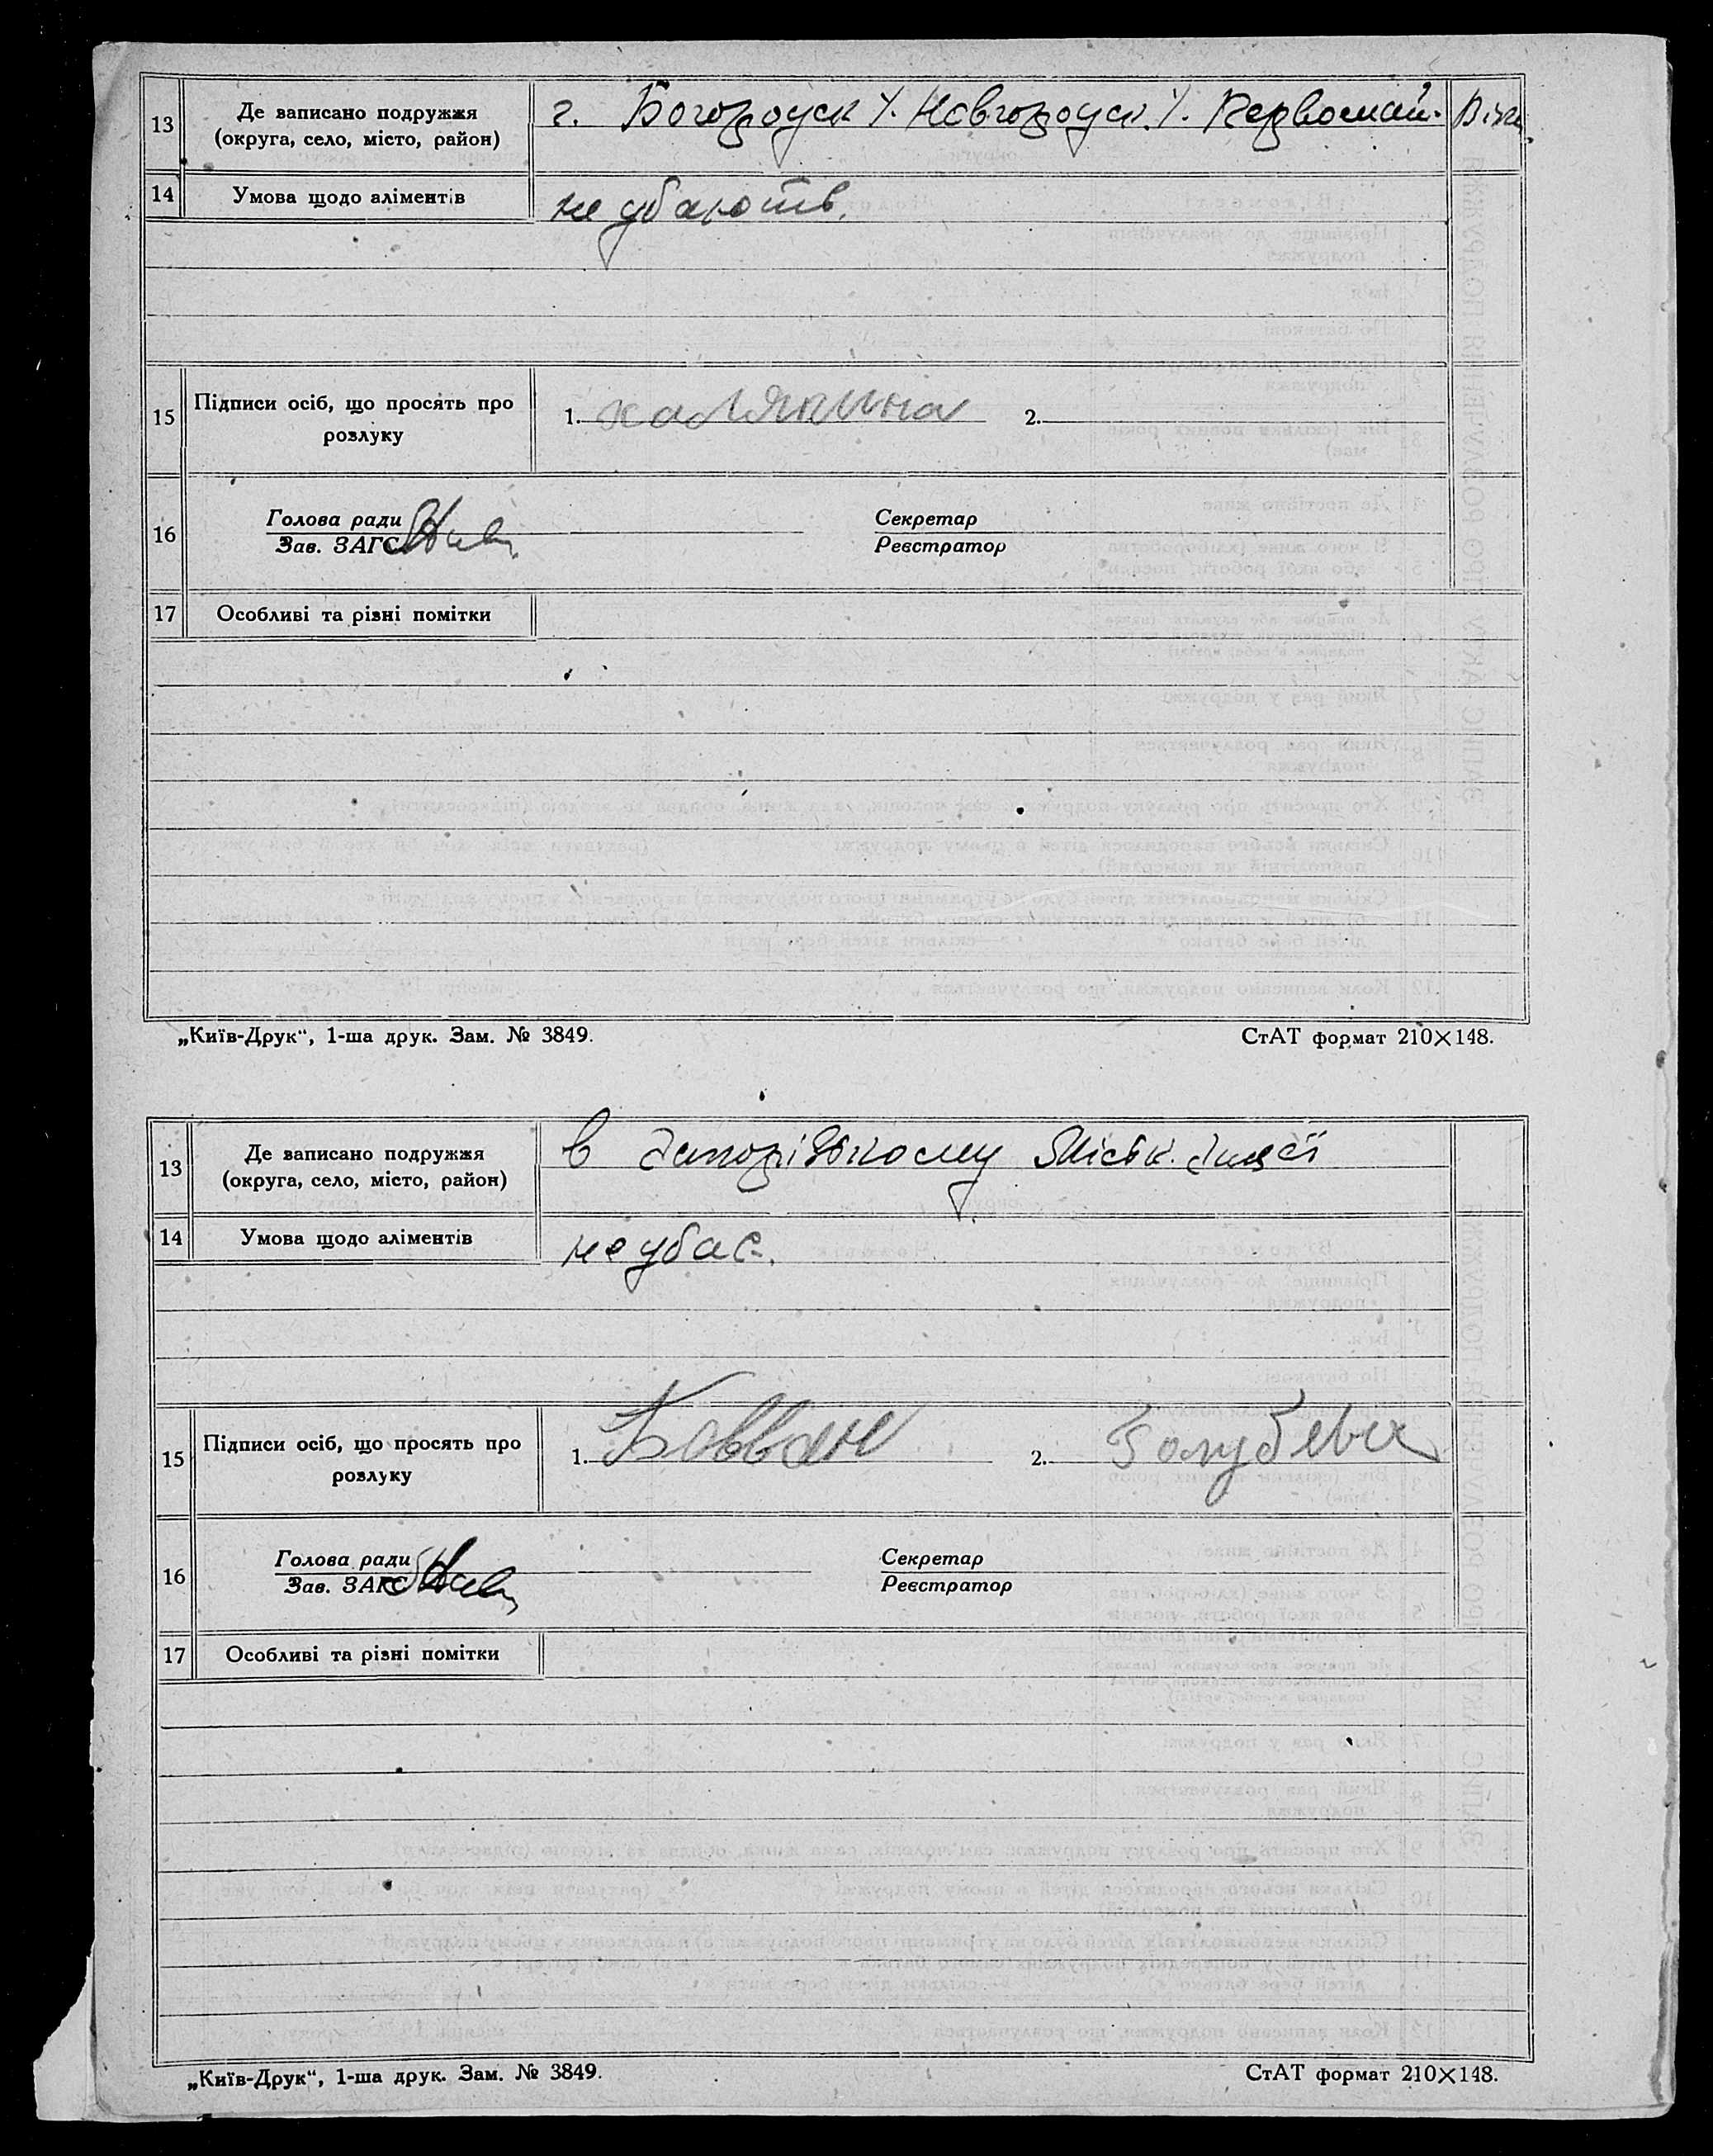 13 Де записано подружжя г. Богородск
(округа, село, місто, район)
14 Умова щодо аліментів не убають
15 Підписи осіб, що просять про 1. калякина 2.
розлуку
16 Голова ради Секретар
Зав. ЗАГС Реєстратор
17 Особливі та різні помітки
„Київ-Друк“, 1-ша друк. Зам. № 3849. СтАТ формат 210×148.
13 Де записано подружжя в Запорізькому
(округа, село, місто, район)
14 Умова щодо аліментів не убає.
15 Підписи осіб, що просять про 1. Бовван 2.
розлуку
16 Голова ради Секретар
Зав. ЗАГС Реєстратор
17 Особливі та різні помітки
„Київ-Друк“, 1-ша друк. Зам. № 3849. СтАТ формат 210×148.